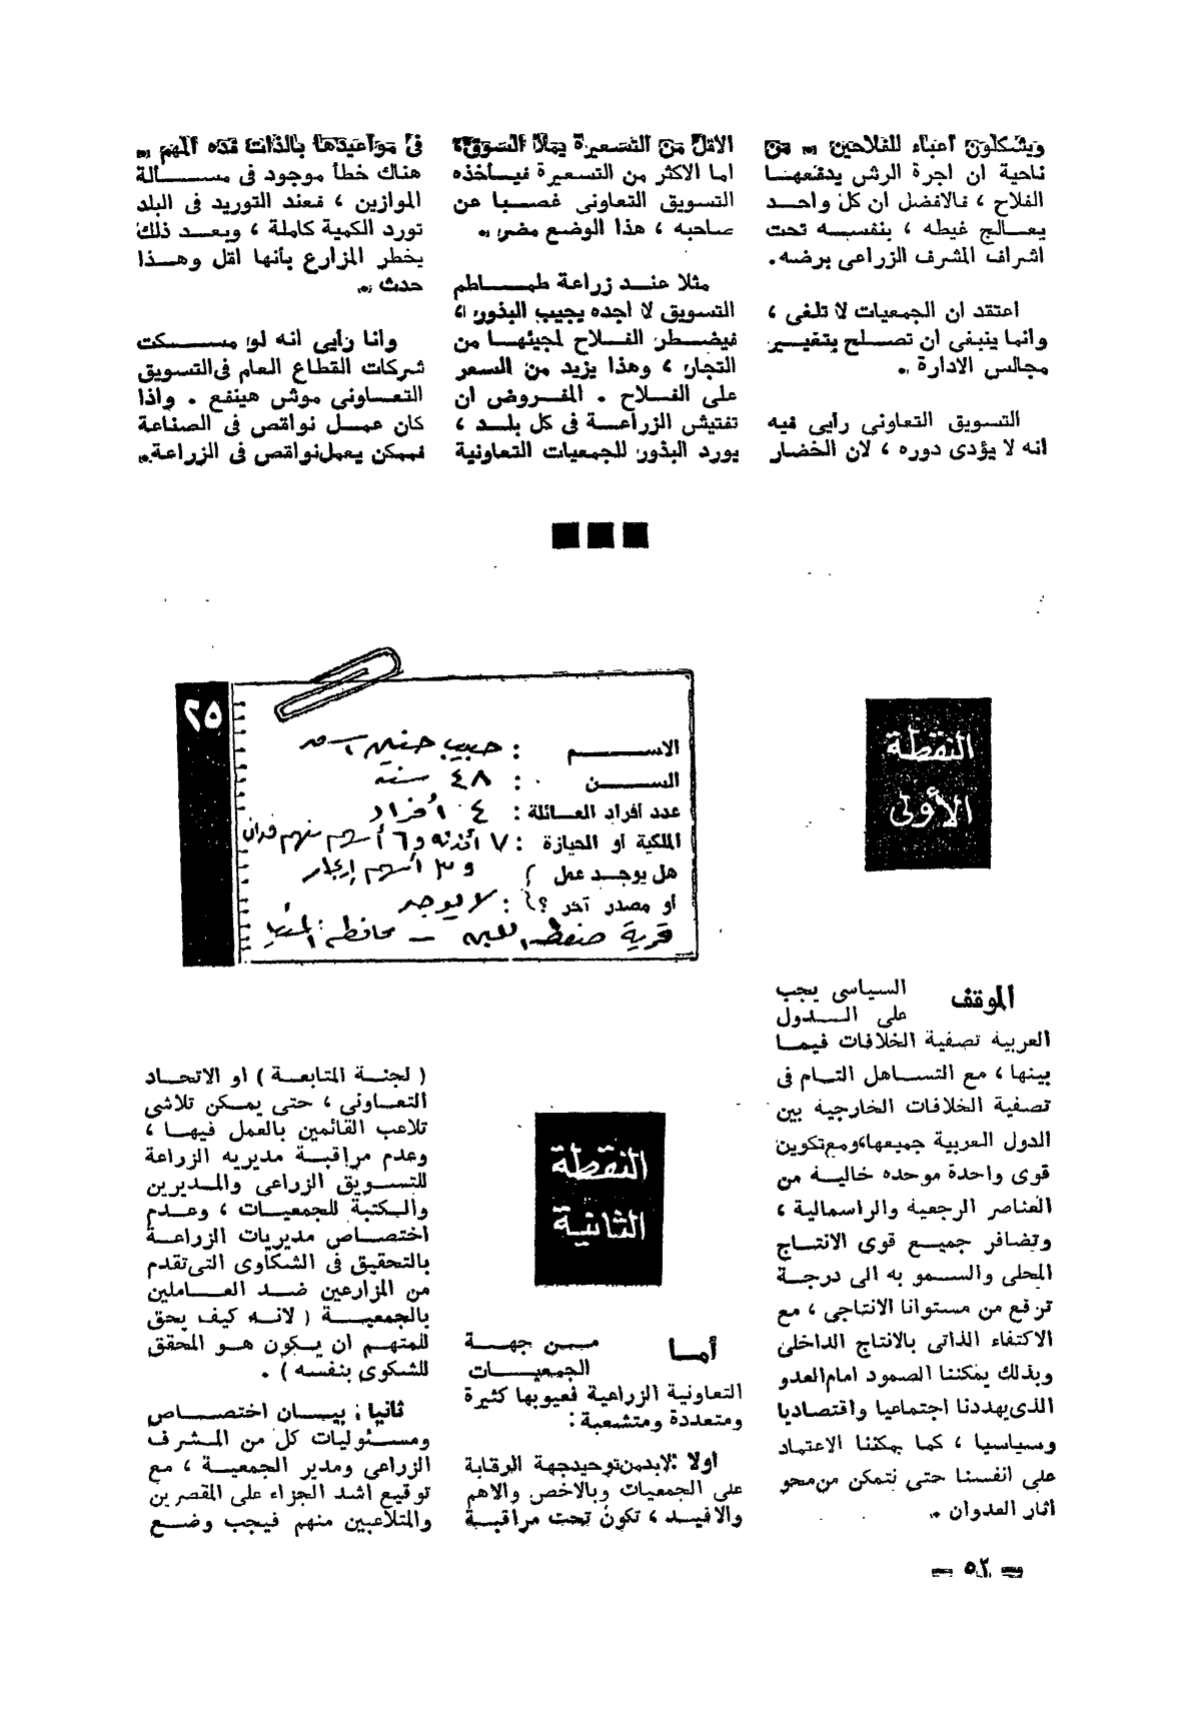 ويشكلون أعباء للفلاحين .. من
ناحية ان اجرة الرش يدفعهـا
الفلاح ، فالافضل ان كل واحـد
يعـالج غيطه ، بنفسـه تحت
اشراف المشرف الزراعى برضه.
اعتقد ان الجمعيات لا تلغى ،
وانما ينبغى ان تصـلح بتغييـر
مجالس الادارة ..
التسويق التعاونى رأيى فيه
انه لا يؤدى دوره ، لان الخضار
الاقل من التسعيرة يملأ السوق،
اما الاكثر من التسعيرة فيـأخذه
التسويق التعاونى غصـبا عن
صاحبه ، هذا الوضع مضر ..
مثلا عنـد زراعة طمـاطم
التسويق لا اجده يجيب البذور ،
فيضـطر الفـلاح لمجيئهـا من
التجار ، وهذا يزيد من السعر
على الفـلاح . المفـروض ان
تفتيش الزراعـة فى كل بلـد ،
يورد البذور للجمعيات التعاونية
فى مواعيدها بالذات فده المهم ..
هناك خطأ موجود فى مسـالة
الموازين ، فعند التوريد فى البلد
تورد الكمية كاملة ، وبعـد ذلك
يخطر المزارع بأنها اقل وهـذا
حدث ..
وانا رأيى انه لو مسـكت
شركات القطاع العام فى التسويق
التعـاونى موش هينفع . واذا
كان عمـل نواقص فى الصناعة
فممكن يعمل نواقص فى الزراعة..
٢٥
الاسـم : حبيب حنين
السـن : ٤٨ سنة
عدد أفراد العـائلة : ٤ أفراد
الملكية أو الحيازة : ٧ أفدنة و ٦ أسهم منهم فدان
هل يوجـد عمل و ٣ أسهم إيجار
أو مصدر آخر ؟ : لا يوجد
قرية صفط اللبن – محافظة المنيا
النقطة
الأولى
الموقف السياسى يجب
على الـدول
العربية تصفية الخلافات فيمـا
بينها ، مع التسـاهل التـام فى
تصفية الخلافات الخارجية بين
الدول العربية جميعها،ومع تكوين
قوى واحدة موحده خاليـة من
العناصر الرجعية والراسمالية ،
وتضافر جميـع قوى الانتـاج
المحلى والسـمو به الى درجـة
ترفع من مستوانا الانتاجى ، مع
الاكتفاء الذاتى بالانتاج الداخلى
وبذلك يمكننا الصمود امام العدو
الذى يهددنا اجتماعيا واقتصاديا
وسياسيا ، كما يمكننا الاعتماد
على انفسنا حتى نتمكن من محو
اثار العدوان ..
النقطة
الثانية
أمـا مـن جهـة
الجمعيـات
التعاونية الزراعية فعيوبها كثيرة
ومتعددة ومتشعبة :
أولا : لابد من توحيد جهة الرقابة
على الجمعيات وبالاخص والاهم
والافيـد ، تكون تحت مراقبـة
( لجنـة المتابعـة ) او الاتحـاد
التعـاونى ، حتى يمـكن تلاشى
تلاعب القائمين بالعمل فيهـا ،
وعدم مراقبـة مديريه الزراعة
للتسـويق الزراعى والمـديرين
والـكتبة للجمعيـات ، وعـدم
اختصاص مديريات الزراعـة
بالتحقيق فى الشكاوى التى تقدم
من المزارعين ضـد العـاملين
بالجمعيـة ( لانـه كيف يحق
للمتهـم ان يـكون هـو المحقق
للشكوى بنفسه ) .
ثانيا : بيـان اختصـاص
ومسـئوليات كل من المـشرف
الزراعى ومدير الجمعيـة ، مع
توقيع اشد الجزاء على المقصرين
والمتلاعبين منهم فيجب وضـع
— ٥٢ —